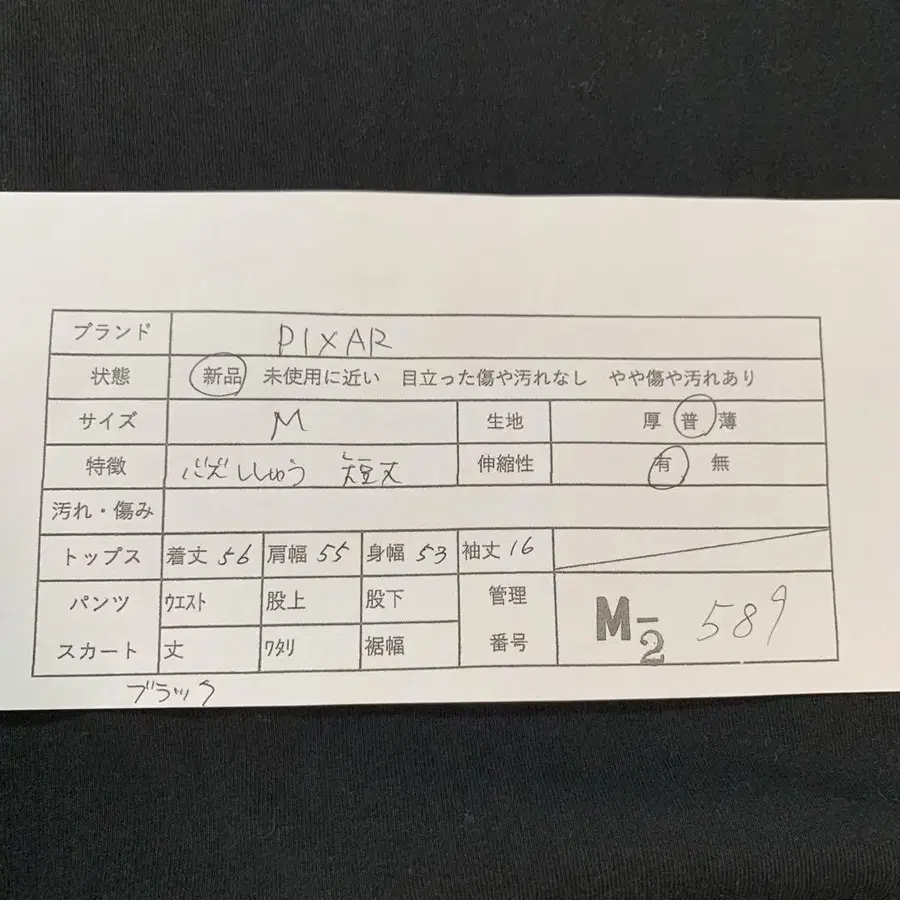 ブランド PIXAR
状態 新品 未使用に近い 目立った傷や汚れなし やや傷や汚れあり
サイズ M 生地 厚 普 薄
特徴 バズししゅう 短丈 伸縮性 有 無
汚れ・傷み
トップス 着丈 56 肩幅 55 身幅 53 袖丈 16
パンツ ウエスト 股上 股下 管理
スカート 丈 ワタリ 裾幅 番号
M-2 589
ブラック